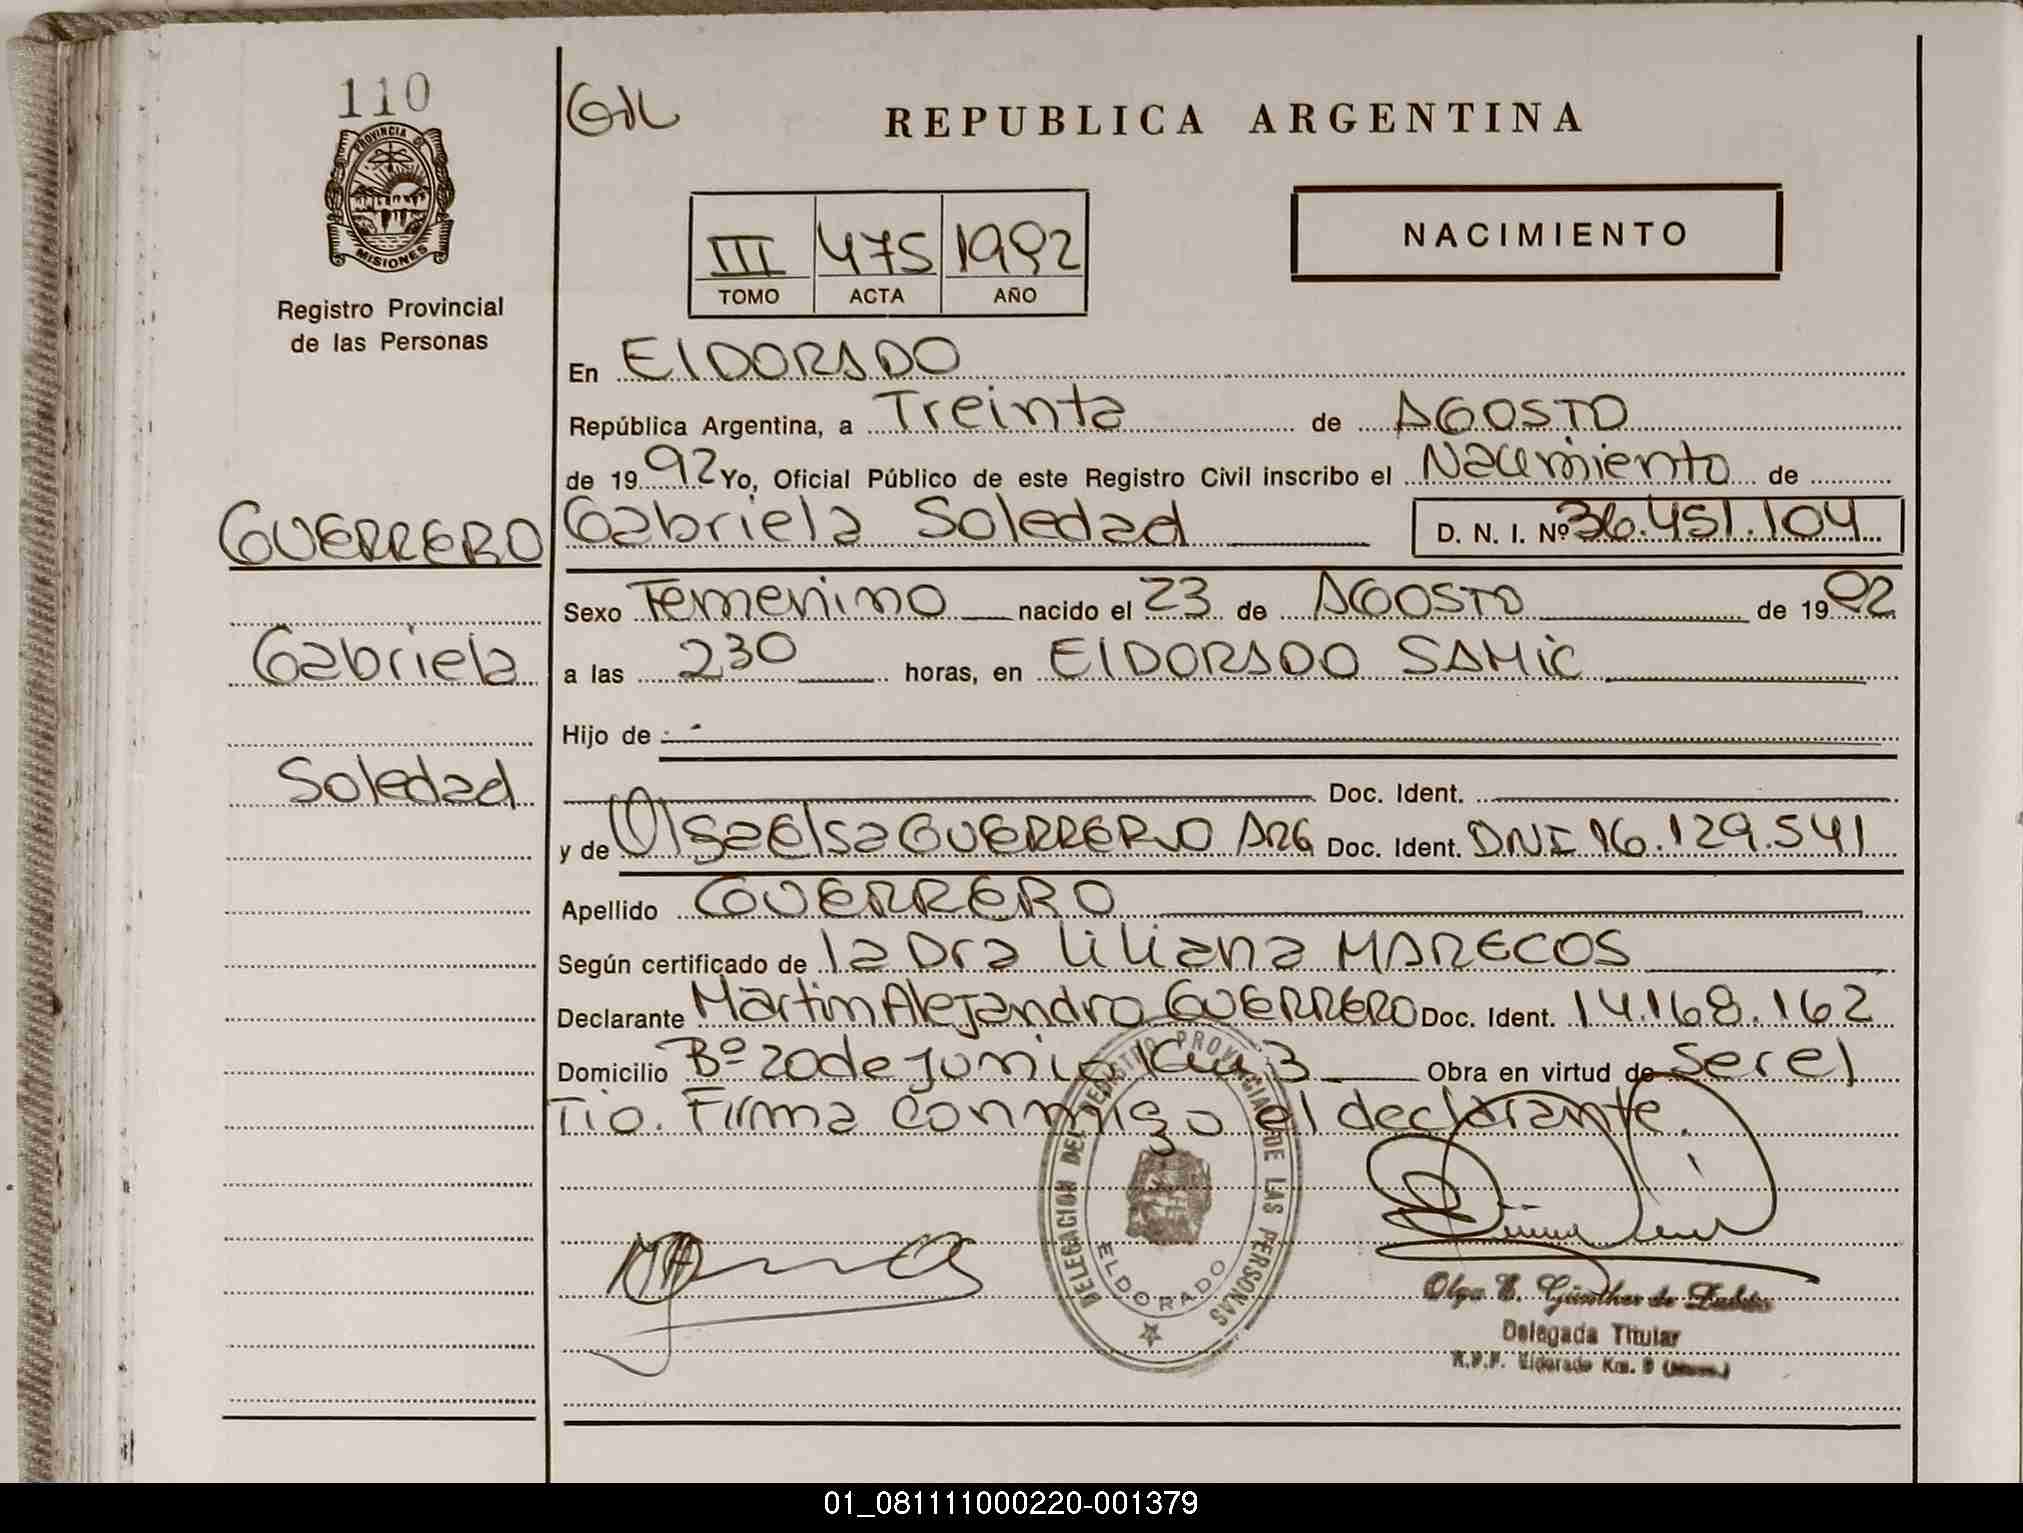 110
PROVINCIA DE
MISIONES
Registro Provincial
de las Personas
GUERRERO
Gabriela
Soledad
REPUBLICA ARGENTINA
III 475 1992
TOMO ACTA AÑO
NACIMIENTO
En ElDORADO
República Argentina, a Treinta de AGOSTO
de 1992 Yo, Oficial Público de este Registro Civil inscribo el Nacimiento de
Gabriela Soledad D. N. I. Nº 36.451.104
Sexo Femenino nacido el 23 de AGOSTO de 1992
a las 230 horas, en ElDORADO SAMiC
Hijo de
Doc. Ident.
y de Olga Elsa GUERRERO ARG Doc. Ident. DNI 16.129.541
Apellido GUERRERO
Según certificado de la Dra Liliana MARECOS
Declarante Martin Alejandro GUERRERO Doc. Ident. 14.168.162
Domicilio Bº 20 de Junio Km 3 Obra en virtud de ser el
Tio. Firma conmigo el declarante.
DELEGACION DEL REGISTRO PROVINCIAL DE LAS PERSONAS
ELDORADO
Olga E. Günther de
Delegada Titular
R.P.P. Eldorado Km. 9
01_081111000220-001379